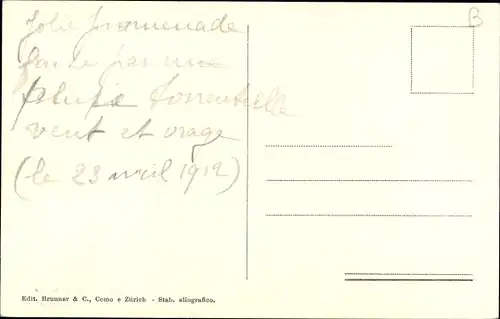 Jolie promenade
faite par une
pluie torrentielle
vent et orage
(le 23 avril 1912)
B
Edit. Brunner & C., Como e Zürich - Stab. eliografico.